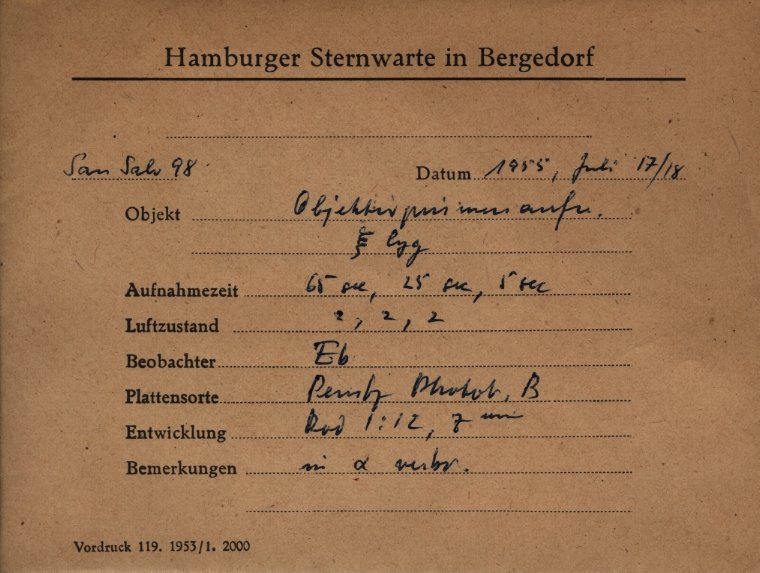 Hamburger Sternwarte in Bergedorf
San Salv 98 Datum 1955, Juli 17/18
Objekt Objektivprismenaufn.
ξ Cyg
Aufnahmezeit 65 sec, 25 sec, 5 sec
Luftzustand 2, 2, 2
Beobachter Eb
Plattensorte Perutz B
Entwicklung Rod 1:12, 7 min
Bemerkungen in α verbr.
Vordruck 119. 1953/1. 2000